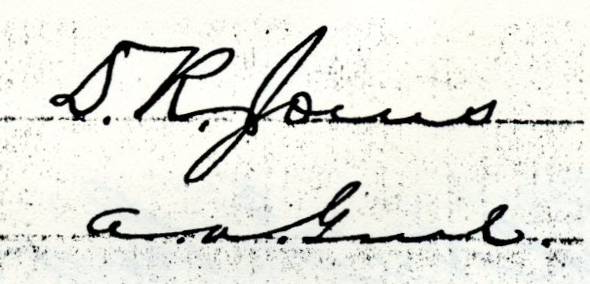 D. R. Jones
a. a. Genl.